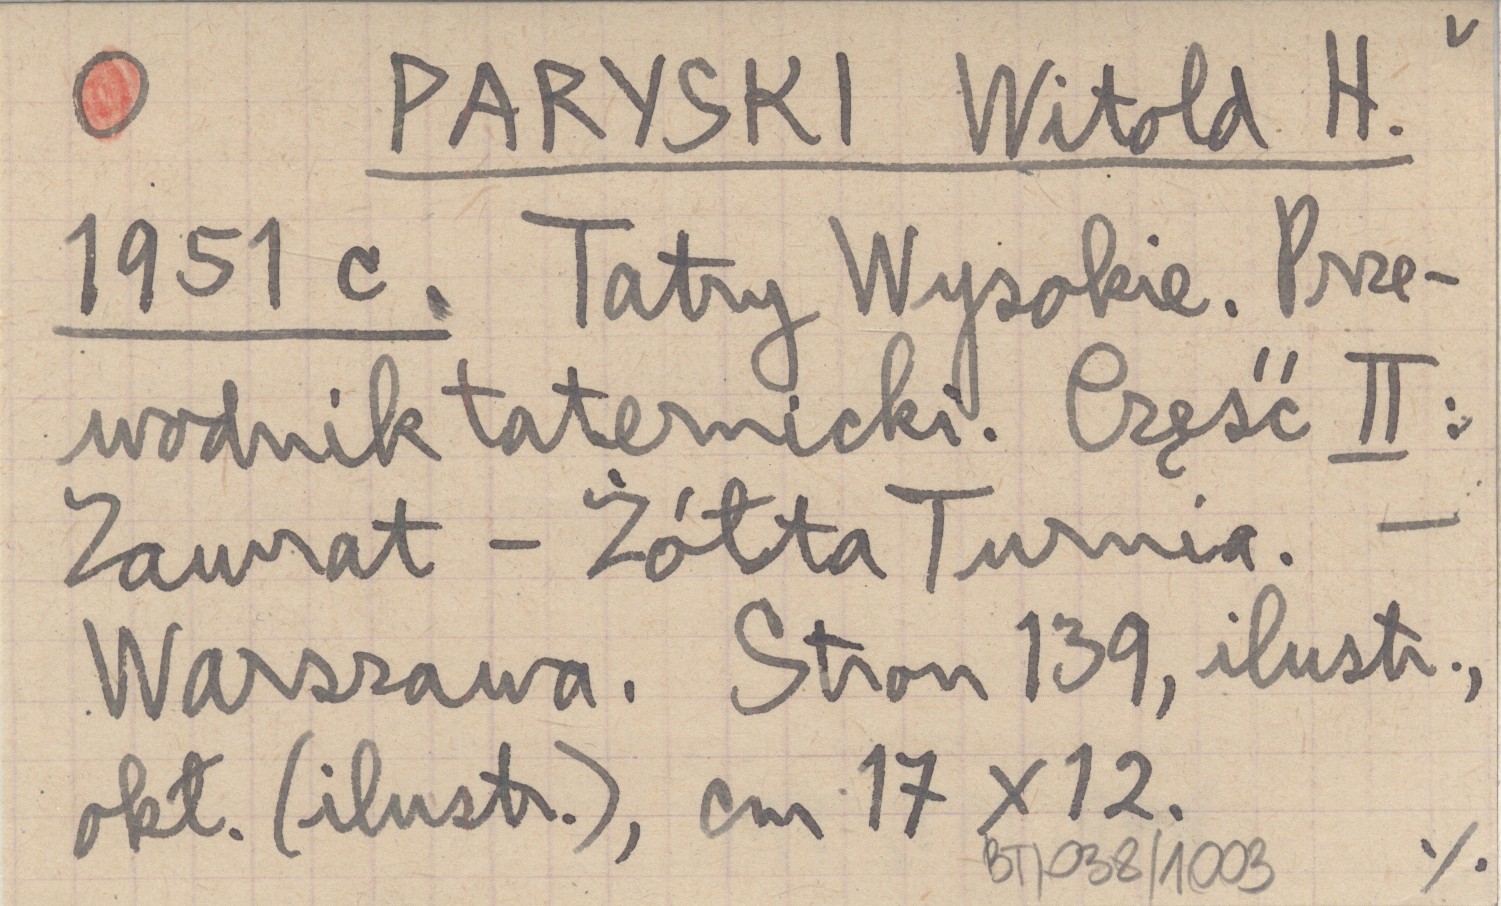 v
PARYSKI Witold H.
1951 c. Tatry Wysokie. Prze-
wodnik taternicki. Część II:
Zawrat - Żółta Turnia. —
Warszawa. Stron 139, ilustr.,
okł. (ilustr.), cm 17 x 12.
BT/038/1003 ./.